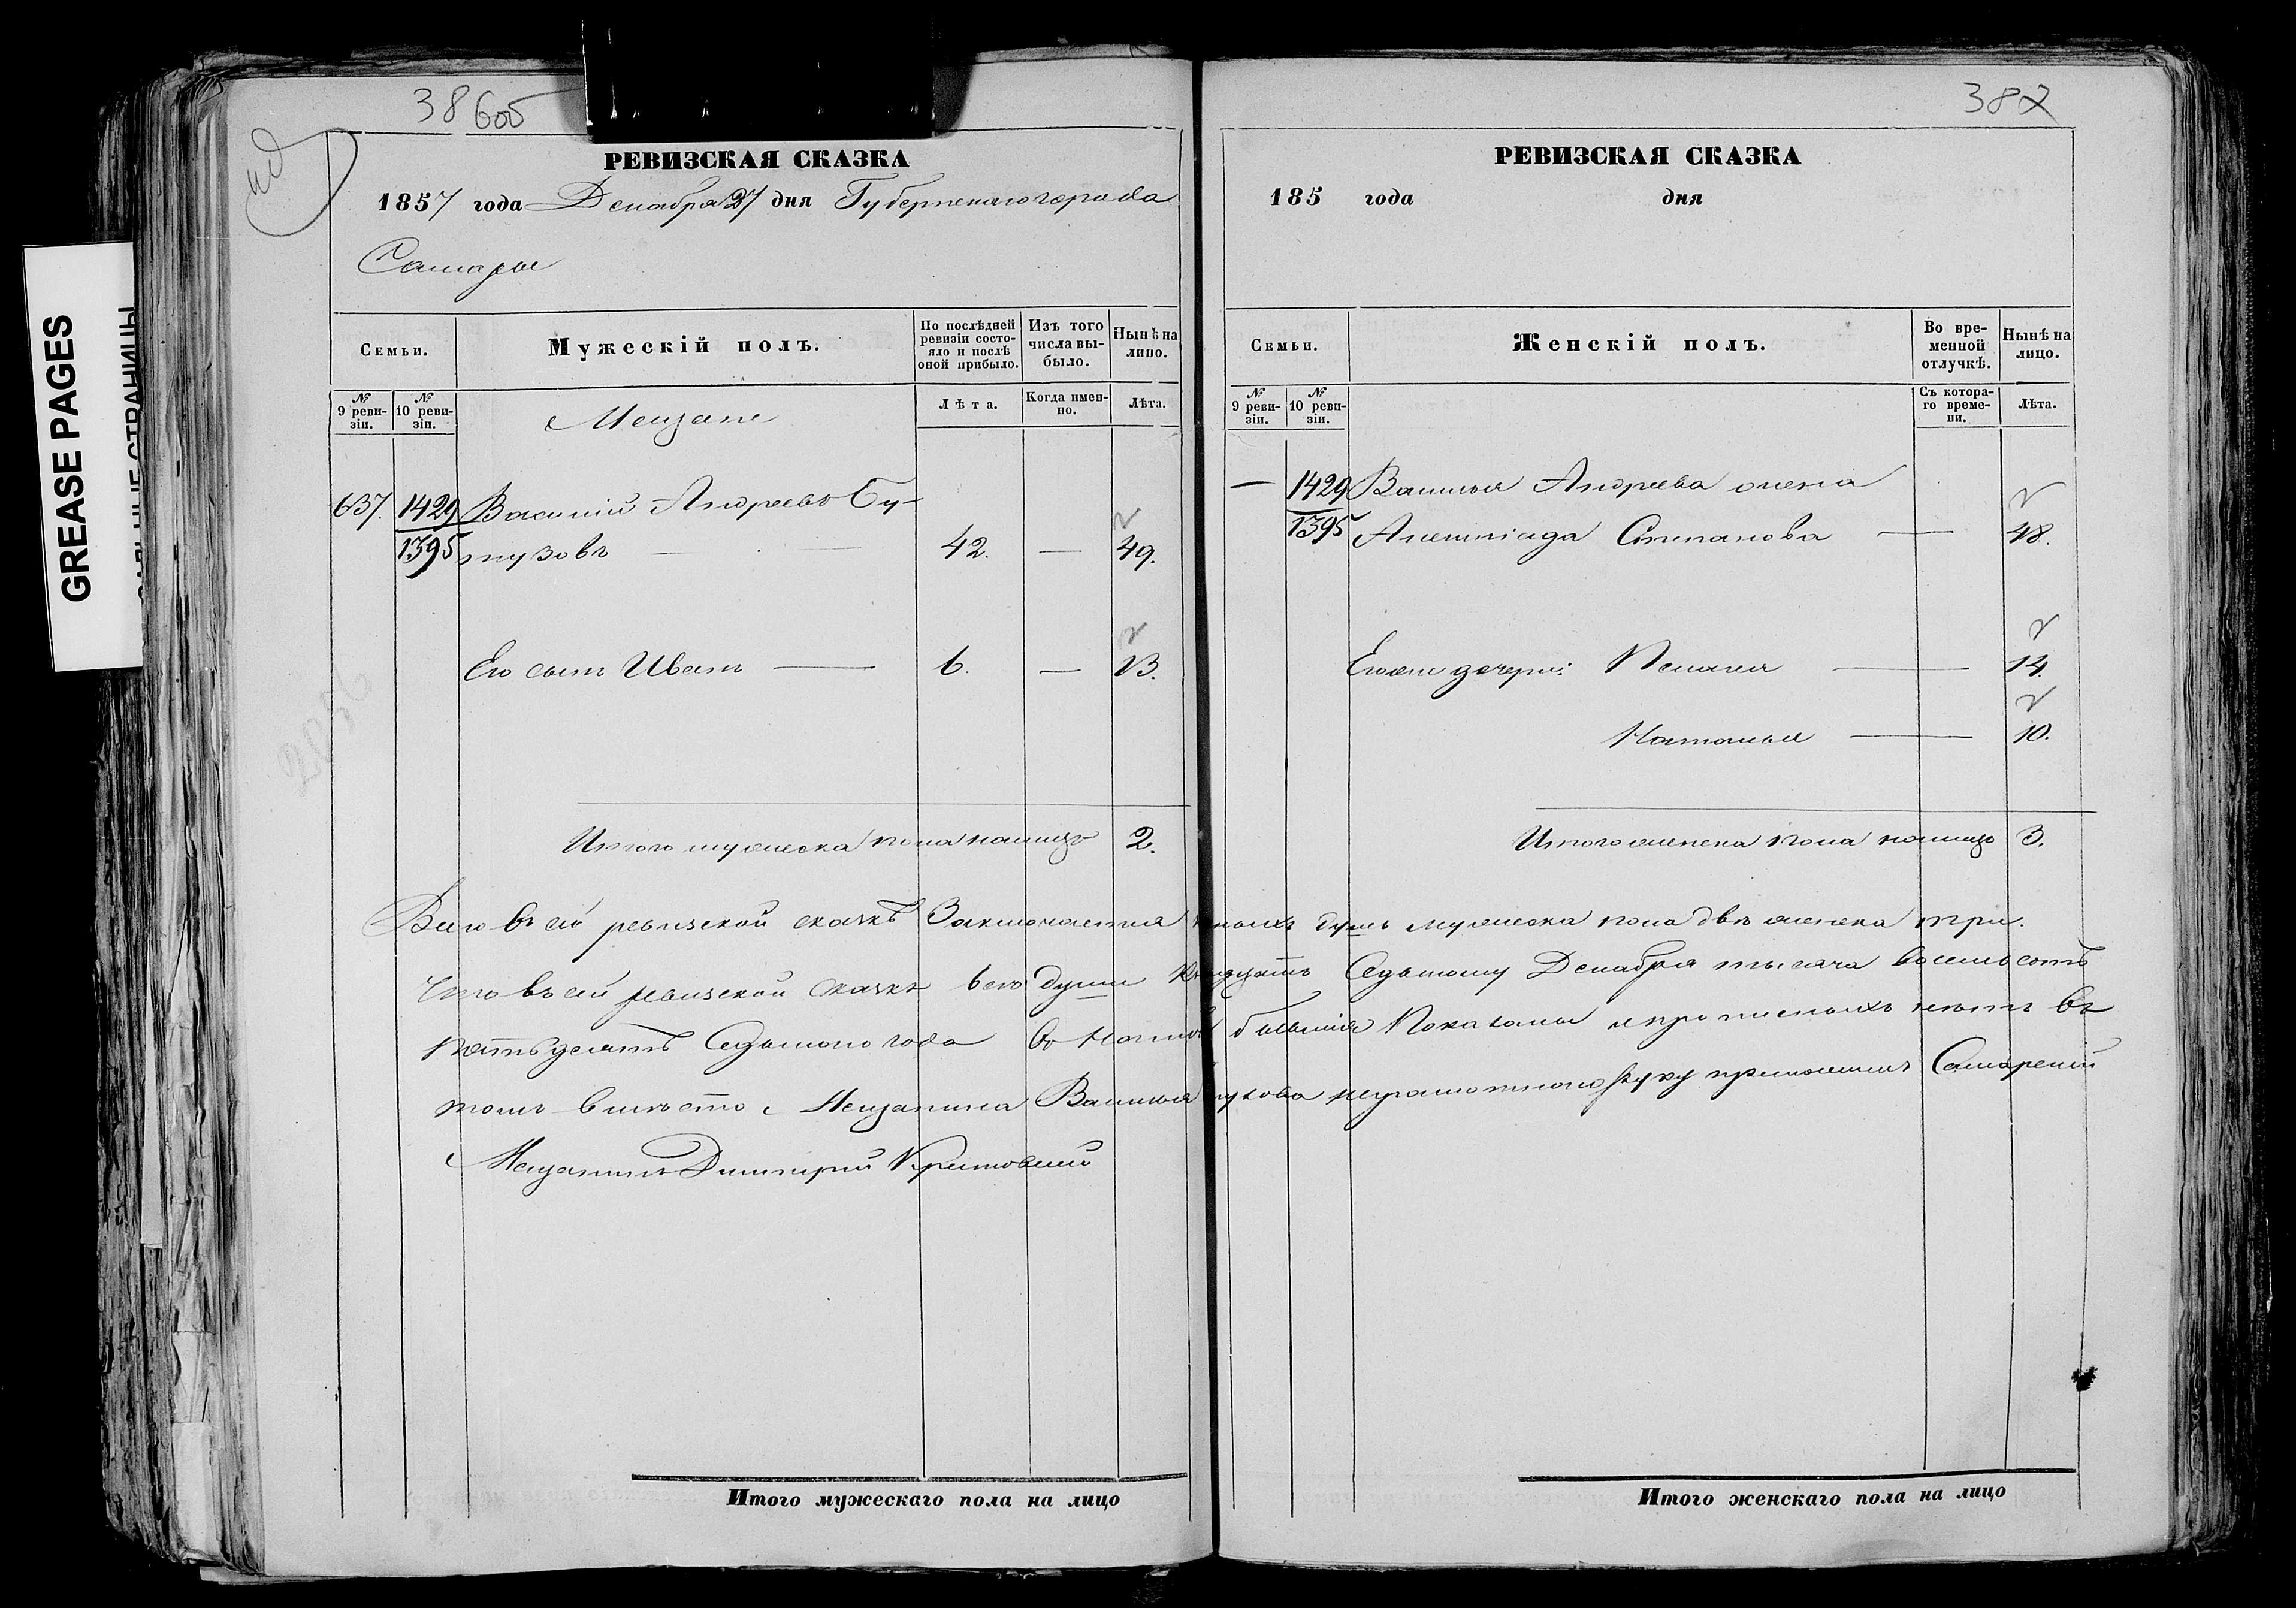 GREASE PAGES
38
605
РЕВИЗСКАЯ СКАЗКА
1857 года Декабря 27 дня Губернскаго города
Самары
Семьи.
Мужескій полъ.
По послѣдней ревизіи состояло и послѣ оной прибыло.
Изъ того числа выбыло.
Нынѣ на лицо.
№ 9 ревизіи.
№ 10 ревизіи.
Мещане
Лѣта.
Когда именно.
Лѣта.
637. 1429 Василий Андреевъ Бу-
1395 тузовъ — 42. — 49.
Его сынъ Иванъ — 6. — 13.
Итого мужеска пола налицо 2.
382
РЕВИЗСКАЯ СКАЗКА
185 года дня
Семьи.
Женскій полъ.
Во временной отлучкѣ.
Нынѣ на лицо.
№ 9 ревизіи.
№ 10 ревизіи.
Съ котораго времени.
Лѣта.
— 1429 Василья Андреева жена
1395 Степанова — 48.
дочери: Пелагея — 14.
Наталья — 10.
Итого женска пола налицо 3.
Всего въ сей ревизской сказкѣ Заключается душъ мужеска пола двѣ женска три.
Что въ сей ревизской сказкѣ всѣ души Седьмому Декабря тысяча восемьсотъ
пятьдесятъ Седьмого года бывшія Показаны и прописныхъ нетъ въ
томъ вместо Мещанина Василья неграмотного руку приложилъ Самарский
Мещанинъ Димитрий
Итого мужескаго пола на лицо
Итого женскаго пола на лицо